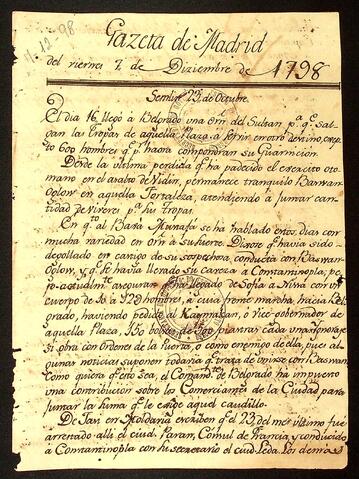 7-12-98
Gazeta de Madrid
del viernes 7 de Diziembre de 1798
Semlin 23 de Octubre.
El dia 16 llegó á Belgrado una Orn. del Sultan pª qe sal-
gan las tropas de aquella Plaza á servir en otro detino, exepto
600 hombres qe por haora compondran su Guarnicion.
Desde la ultima perdida qe ha padecido el exercito oto-
mano en el arabo de Vidin, permanece tranquilo Baswan-
Oglow en aquella Fortaleza, atendiendo á juntar can-
tidad de viveres pª sus tropas.
En qto al Bara Mustafá se ha hablado estos dias con
mucha variedad en orn á su suerte. Dixose qe havia sido
degollado en castigo de su sospechosa conducta con Baswan-
Oglow, y qe se havia llevado su caveza a Constantinopla; pe-
ro actualmte aseguran ha llegado de Sofia a Nisa con un
cuerpo de 10 a 12 hombres, a cuia frente marcha hacia Bel-
grado, haviendo pedido al Kaymakan, ó Vice-gobernador de
aquella Plaza, 350 bolsas de 500 piastras cada una. Ygnorase
si obra con ordenes de la Puerta, ó como enemigo de ella, pues al-
gunas noticias suponen todavia qe trata de unirse con Baswan.
Como quiera qe esto sea, el Comandte de Belgrado ha impuesto
una contribucion sobre los Comerciantes de la Ciudad, para
juntar la suma qe le exige aquel caudillo.
De Jasi en Moldavia escriben qe el 23 del mes ultimo fue
arrestado alli el ciud. Paran, Cónsul de Francia, y conducido
a Constantinopla con su secretario el ciud. Leda. Los demas